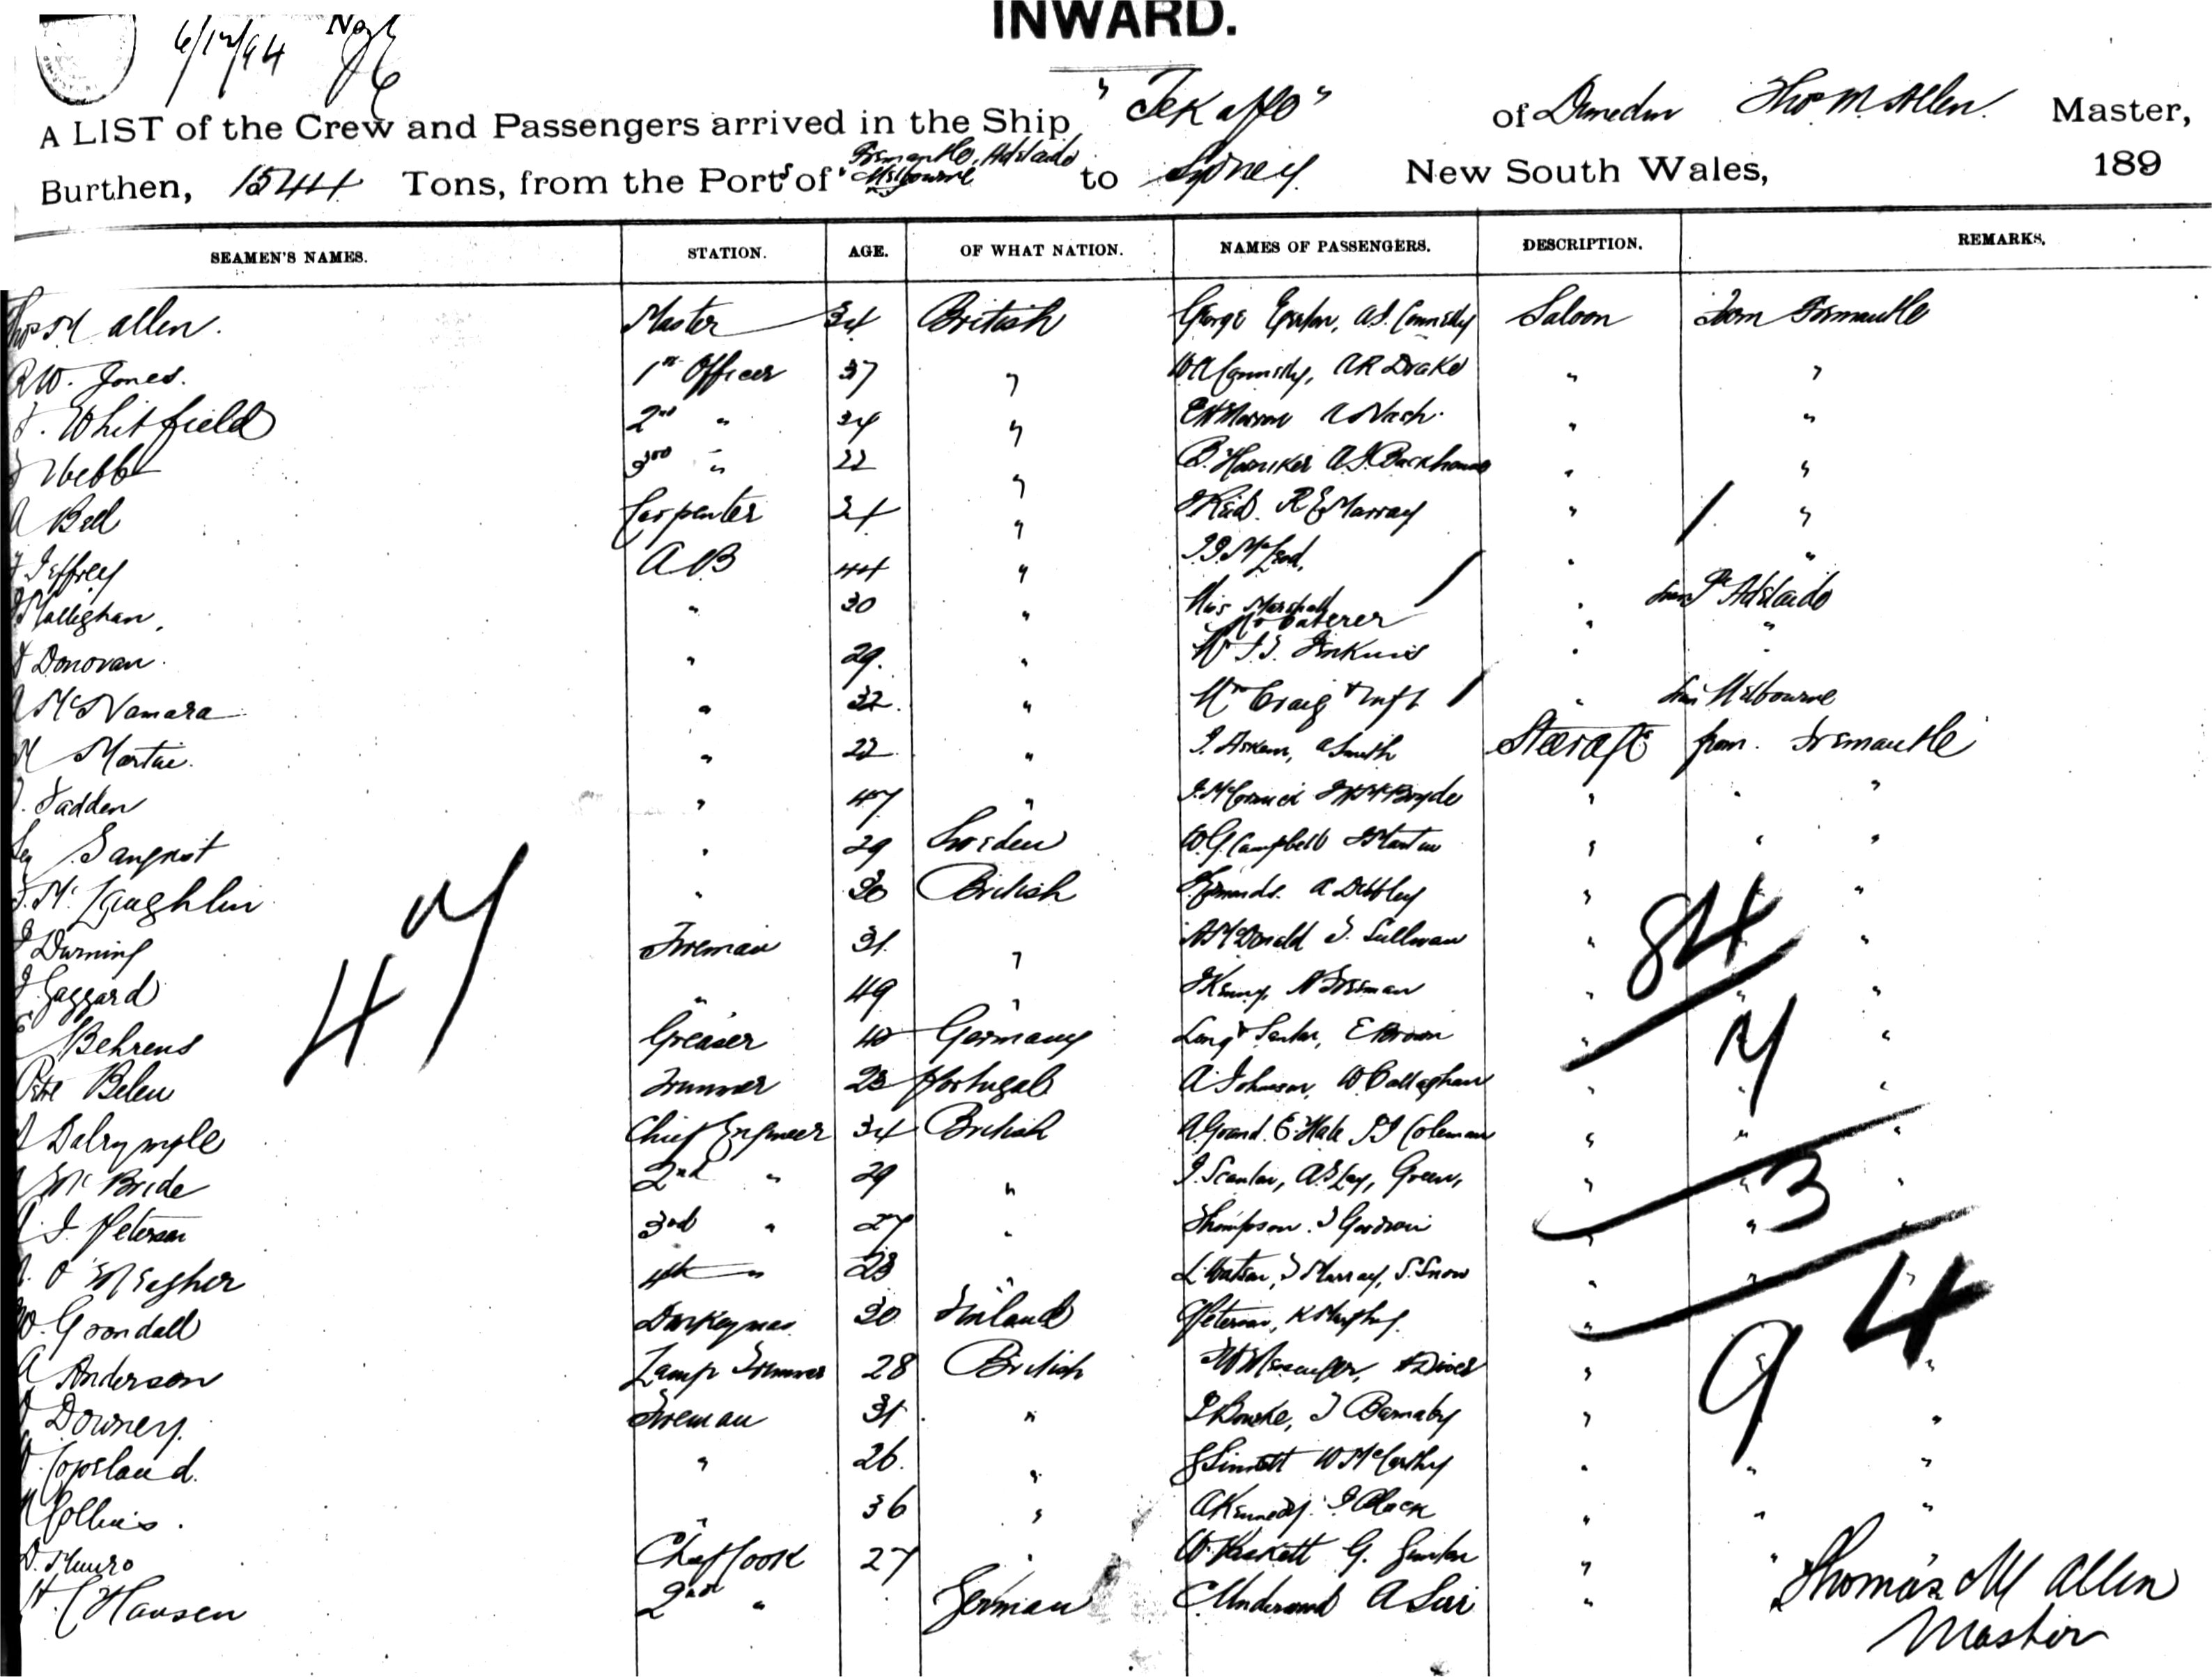 INWARD.
6/12/94 No
A LIST of the Crew and Passengers arrived in the Ship "Tekapo" of Dunedin Thos M. Allen. Master,
Burthen, 1544 Tons, from the Ports of Fremantle, Adelaide Melbourne to Sydney. New South Wales, 189
SEAMEN'S NAMES. STATION. AGE. OF WHAT NATION. NAMES OF PASSENGERS. DESCRIPTION. REMARKS.
Thos M allen. Master 34 British George A.J. Connelly Saloon From Fremantle
R W. Jones. 1st Officer 37 " W A Connelly, A R Drake " "
F. Whitfield 2nd " 34 " A Nash. " "
Webb 3rd " 22 " B. Horniker A.J. Backhouse " "
A Bell Carpenter 24 " J Reid. R E Murray " "
J Jeffrey A B 44 " McLeod, " "
Mallighan. " 30 " Miss Marshall " from Pt Adelaide
Mr Caterer " "
Donovan. " 29. " Mr Jenkins " "
McNamara " 32. " Mr Craig & wife " from Melbourne
Martin. " 22 " J. Askam, A Smith Steerage from. Fremantle
J. Fadden " 47 " J. McCormick McBryde " " "
" 29 Sweden W.G. Campbell J Martin " " "
J. McLaughlin " 30 British Edmonds. A Dibbley " " "
Durning Fireman 31. " A McDonald J. Sullivan " "
J. Gaggard " 49 " J Kenny, N Freeman " " "
Behrens Greaser 40 Germany Long & E Brown " "
Pete Belen Trimmer 23 Portugal A Johnson, W Callaghan " " "
Dalrymple Chief Engineer 34 British A Grand. E. Hale Coleman " " "
McBride 2nd " 29 " J. Scanlan, Green, " " "
J. Peterson 3rd " 27 " Thompson. J Goodwin " "
O'Meagher 4th " 23 " L. Watson, J Murray, S. Snow " " "
W. Grondall Donkeyman 30 Finland Peterson, K Murphy. "
A Anderson Lamp Trimmer 28 British Messenger, " "
Downey. Fireman 31. " J Bourke, J Barnaby " "
Copeland. " 26. " Sinnott W McCarthy " " "
Collins. " 36 " A Kennedy. J Black " " "
D. Munro Chef Cook 27 " W. Haskett G. " "
H. C Hansen 2nd " German C Underwood "
47
84
7
3
4
9
Thomas M Allen
Master